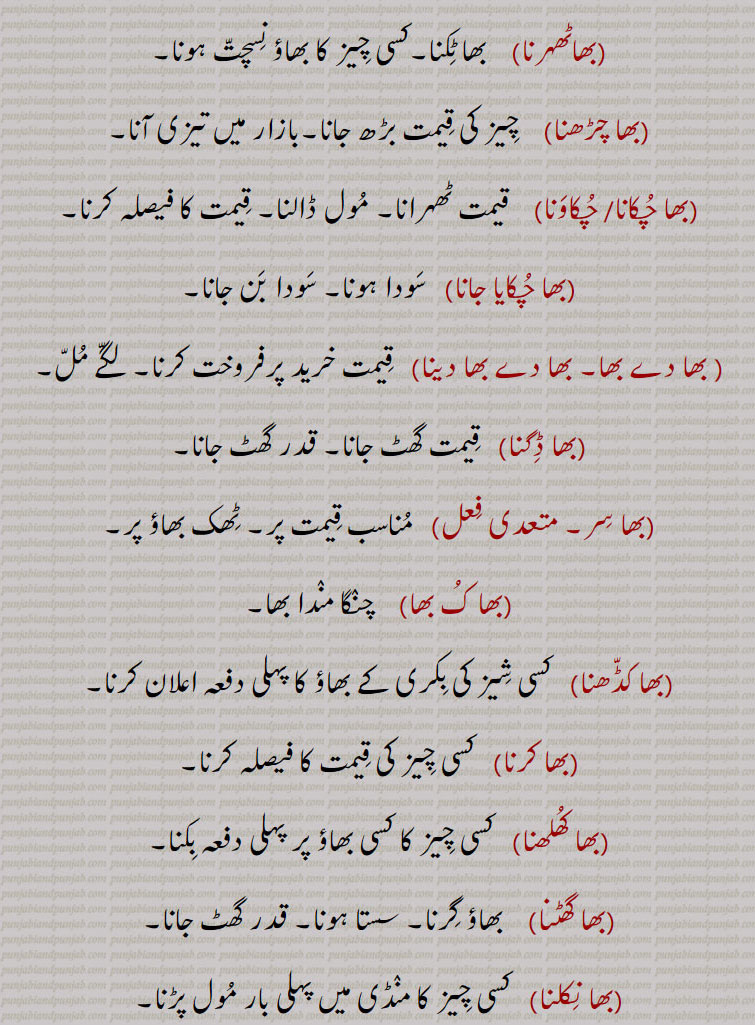 (بھاٹھہرنا) بھاٹِکنا۔ کسی چِیز کا بھاؤ نِسچِتّ ہونا۔
(بھا چڑھنا) چِیز کی قِیمت بڑھ جانا۔ بازار میں تیزی آنا۔
(بھا چُکانا/ چُکاوَنا) قیمت ٹھہرانا۔ مُول ڈالنا۔ قِیمت کا فیصلہ کرنا۔
(بھا چُکایا جانا) سَودا ہونا۔ سَودا بَن جانا۔
( بھا دے بھا۔ بھا دے بھا دینا) قِیمت خرید پر فروخت کرنا۔ لگّے مُلّ۔
(بھا ڈِگنا) قِیمت گھٹ جانا۔ قدر گھٹ جانا۔
(بھا سِر ۔ متعدی فِعل) مُناسب قِیمت پر۔ ٹِھک بھاؤ پر۔
(بھا کُ بھا) چنْگا منْدا بھا۔
(بھا کڈّھنا) کسی شِیز کی بِکری کے بھاؤ کا پہلی دفعہ اعلان کرنا۔
(بھا کرنا) کسی چِیز کی قِیمت کا فیصلہ کرنا۔
(بھا کُھلھنا) کسی چِیز کا کسی بھاؤ پر پہلی دفعہ بِکنا۔
(بھا گھٹنا) بھاؤ گِرنا۔ سستا ہونا۔ قدر گھٹ جانا۔
(بھا نِکلنا) کسی چِیز کا منْڈی میں پہلی بار مُول پڑنا۔